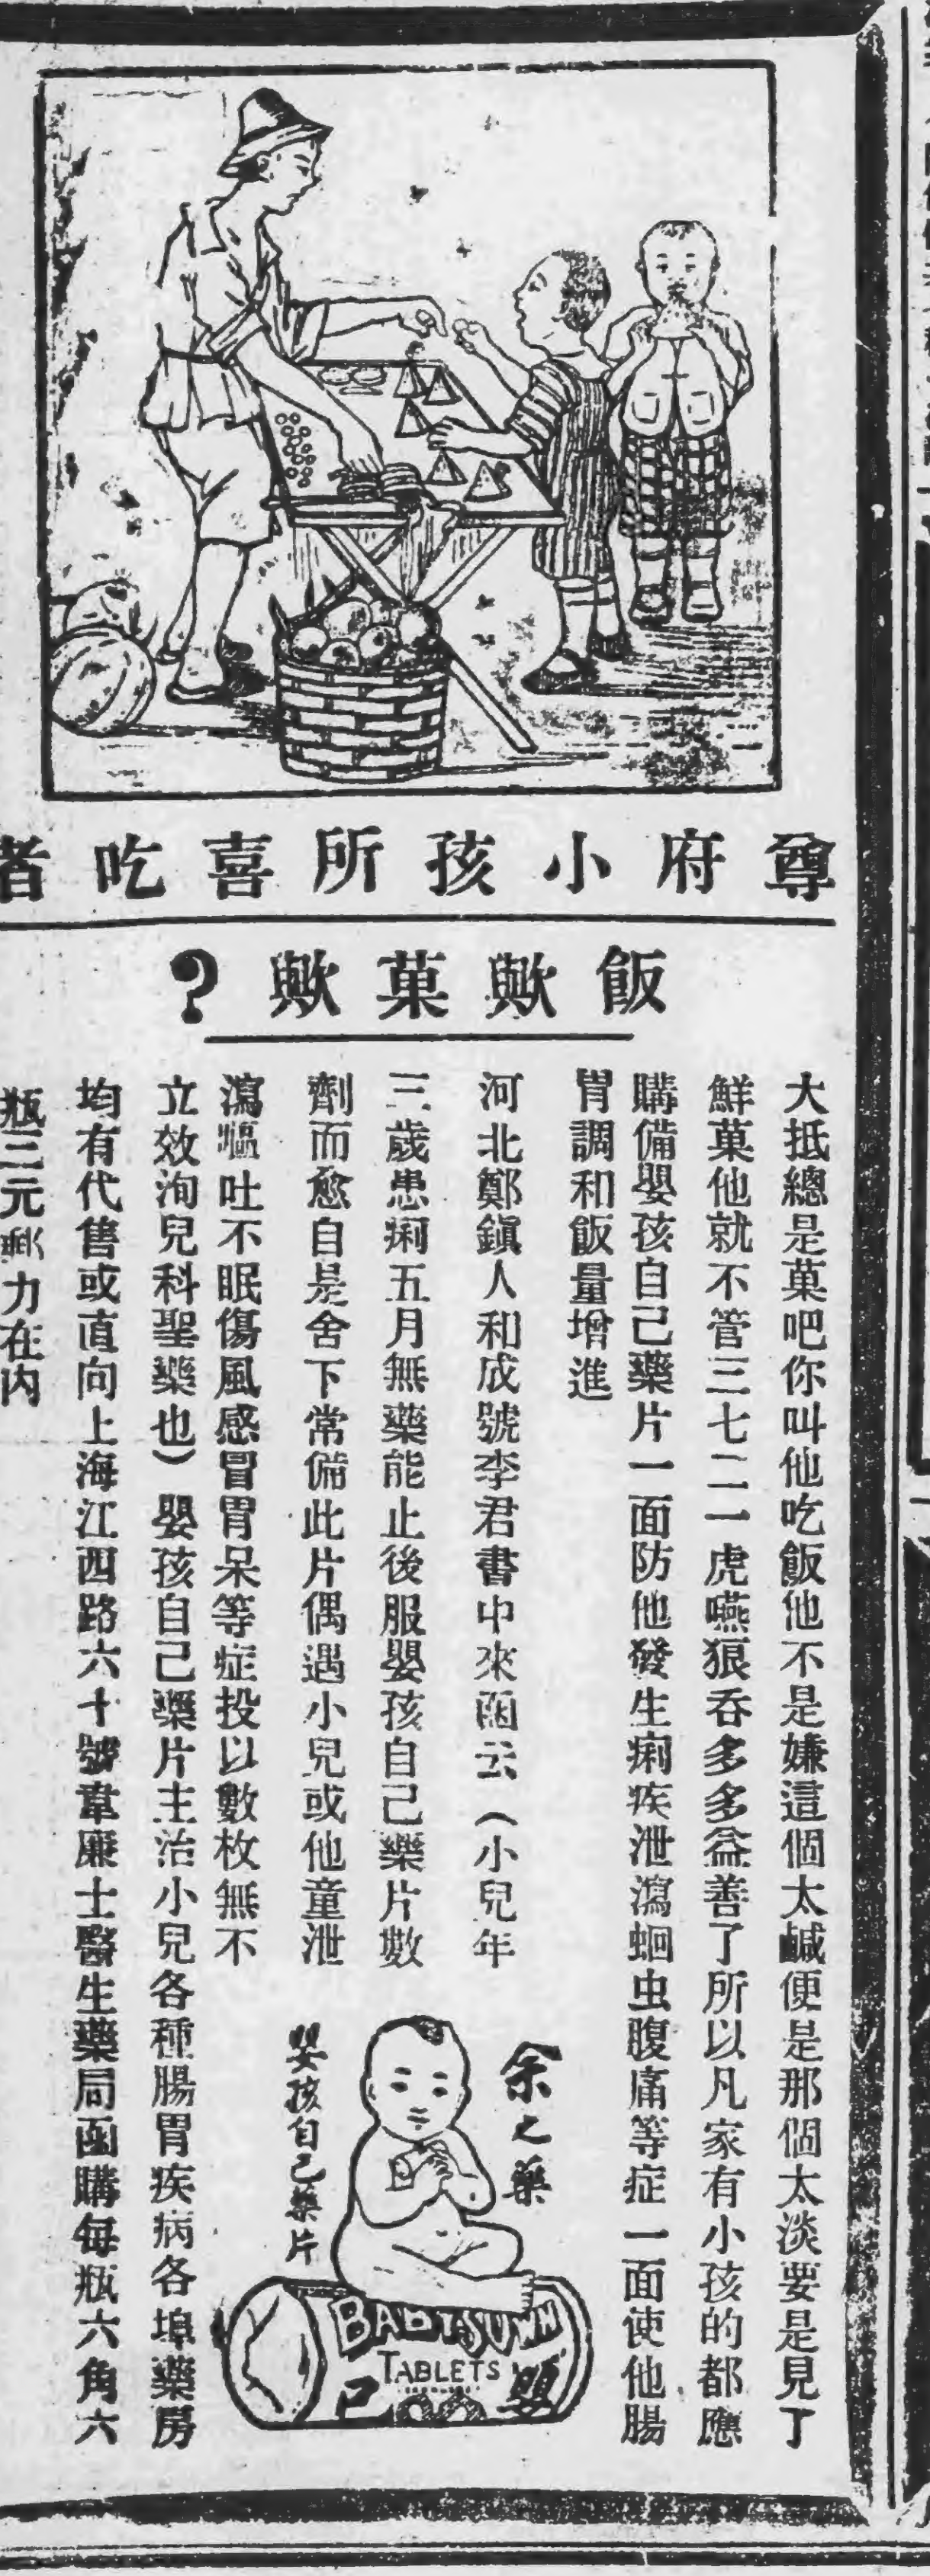 尊府小孩所喜吃者
飯歟菓歟?
大抵總是菓吧你叫他吃飯他不是嫌這個太鹹便是那個太淡要是見了
鮮菓他就不管三七二一虎嚥狼吞多多益善了所以凡家有小孩的都應
購備嬰孩自己藥片一面防他發生痢疾泄瀉蛔虫腹痛等症一面使他腸
胃調和飯量增進
河北鄭鎭人和成號李君書中來函云（小兒年
三歲患痢五月無藥能止後服嬰孩自己藥片數
劑而愈自是舍下常備此片偶遇小兒或他童泄
瀉嘔吐不眠傷風感冒胃呆等症投以數枚無不
立效洵兒科聖藥也）嬰孩自己藥片主治小兒各種腸胃疾病各埠藥房
均有代售或直向上海江西路六十號韋廉士醫生藥局函購每瓶六角六
瓶三元 力在内
余之藥
嬰孩自己藥片
BABY'S OWN
TABLETS
己 嬰